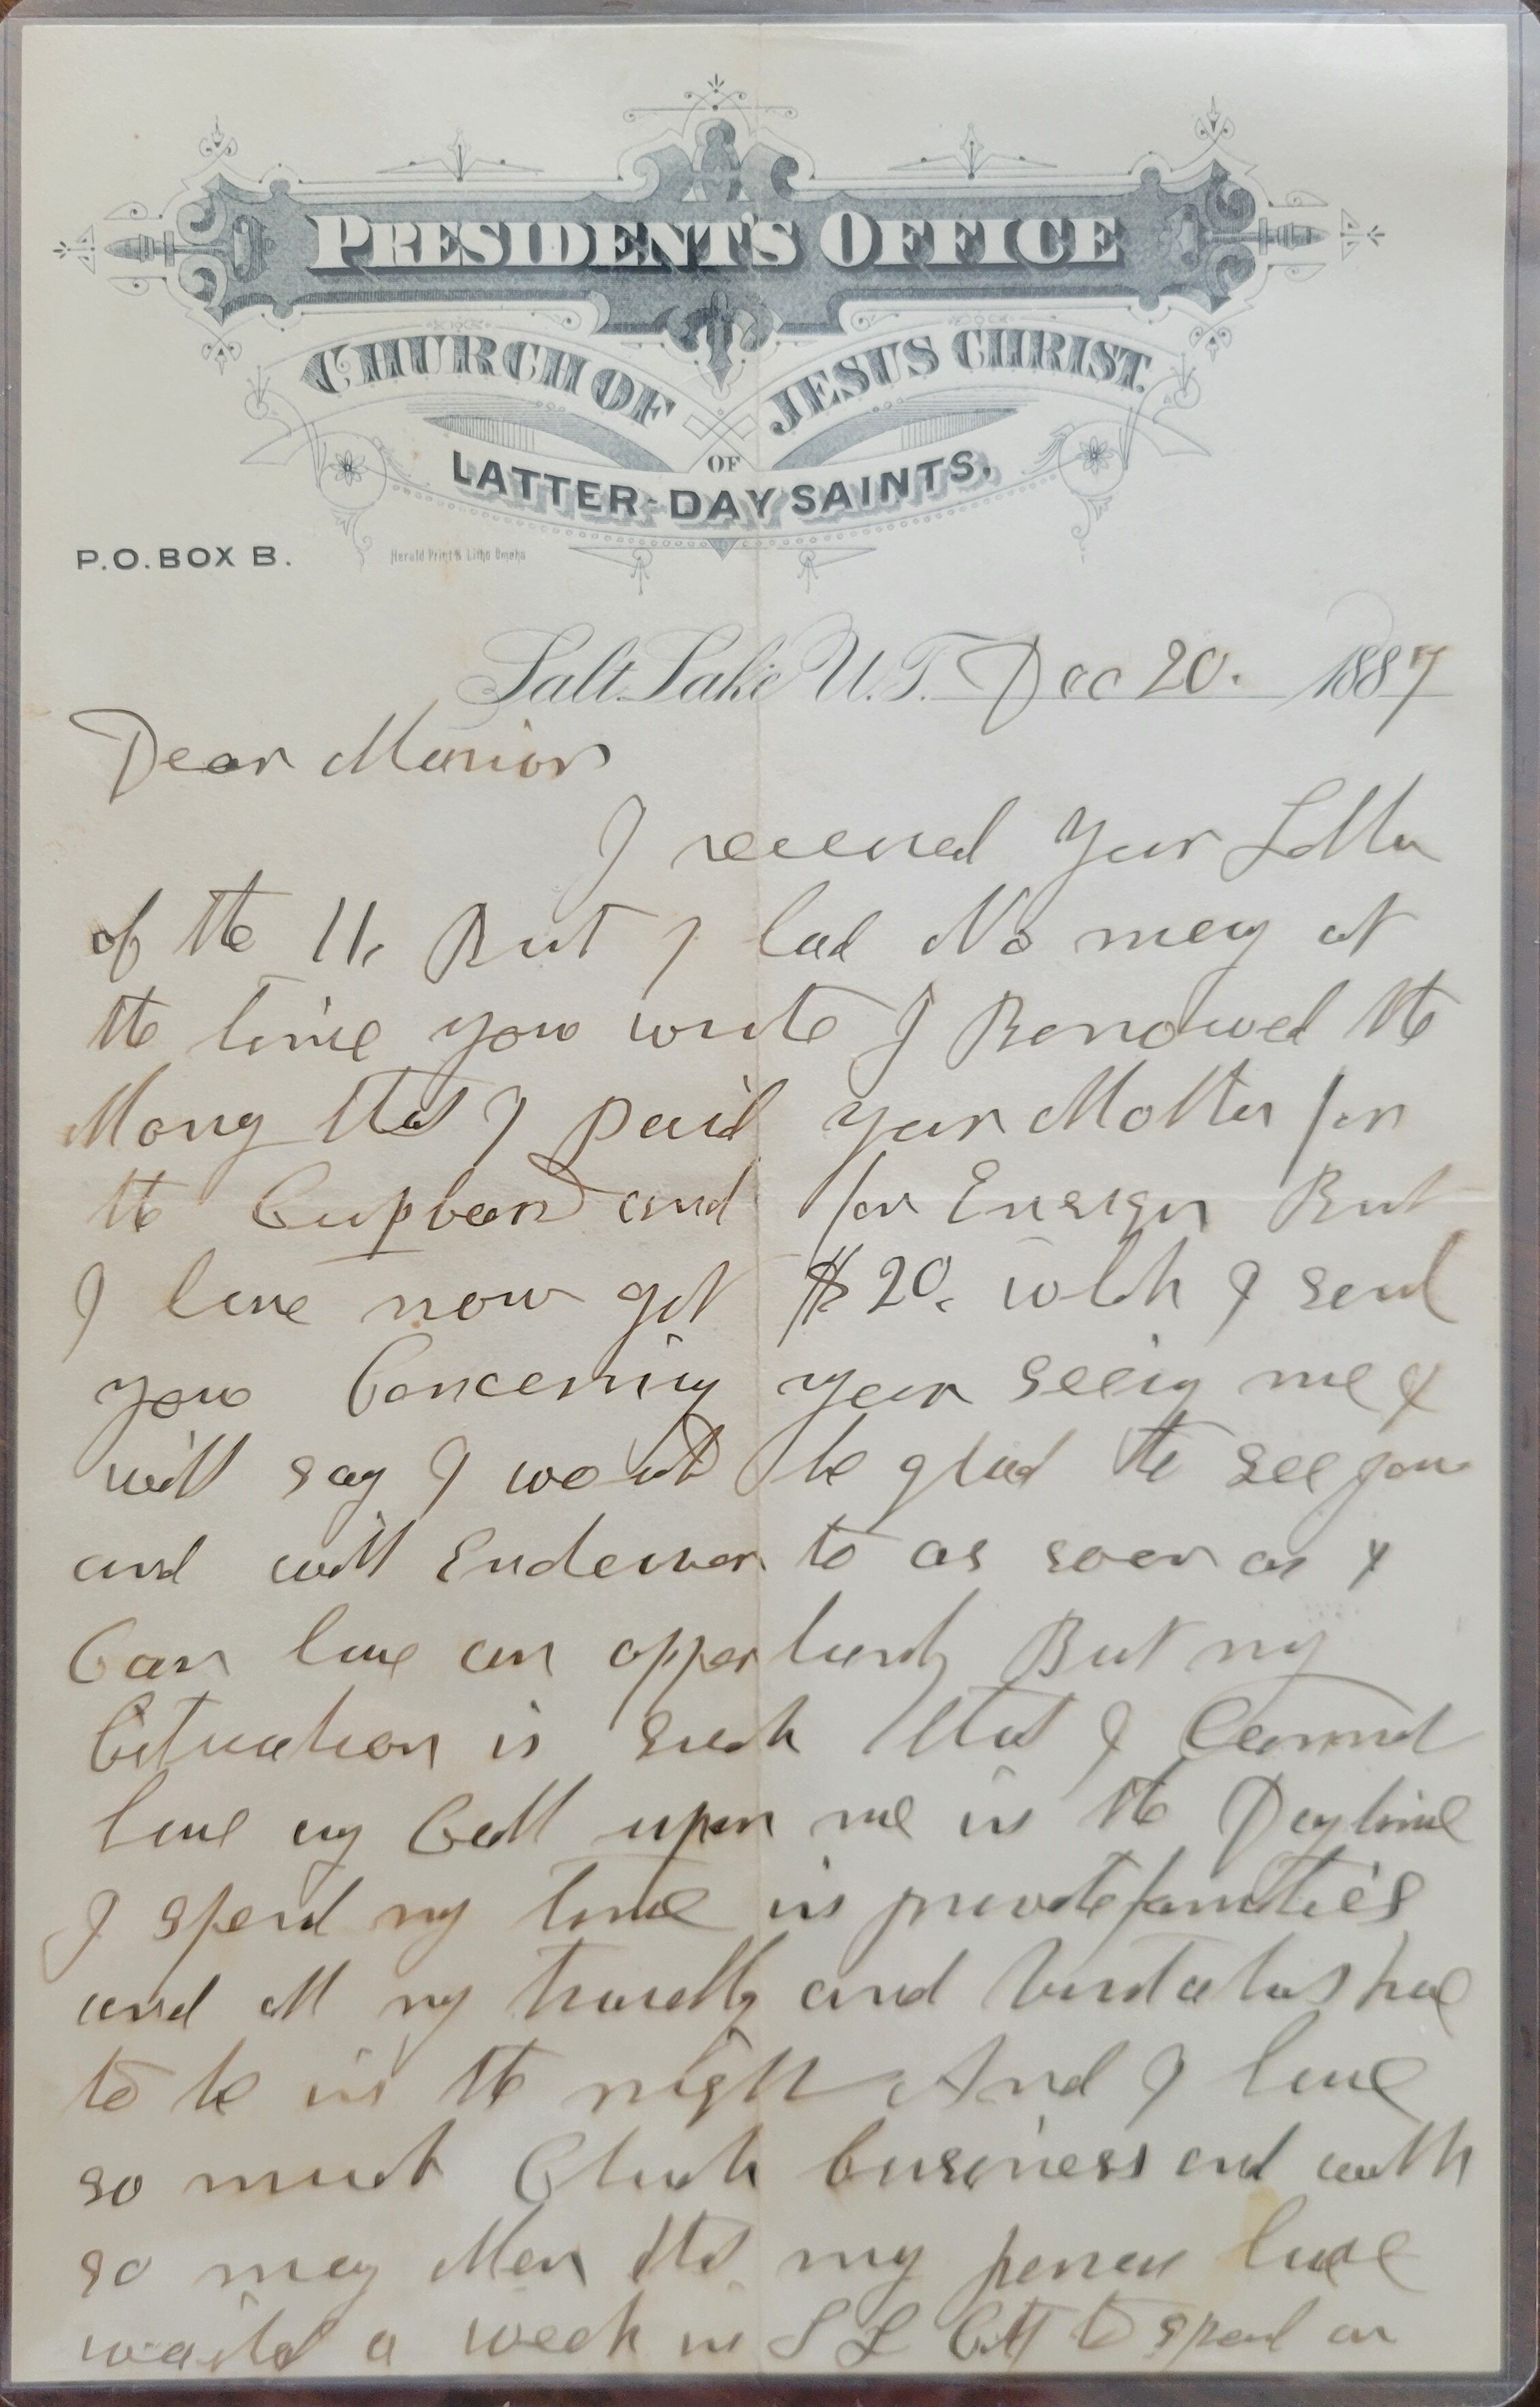 PRESIDENT'S OFFICE
CHURCH OF JESUS CHRIST
OF
LATTER-DAY SAINTS.
P.O. BOX B.
Herald Print & Litho Omaha
Salt Lake U.T. Dec 20. 1887
Dear Marion
I received your Letter
of the 11. But I had No mony at
the time you wrote I Borrowed the
Mony that I paid your Mother for
the Cupboard and for Ensign But
I have now got $20. which I send
you Concerning your seeing me I
will say I would be glad to see you
and will Endeavor to as soon as I
Can have an opportunity But my
Cituation is such that I Cannot
have any Call upon me in the Daytime
I spend my time in private families
and all my travelling and has to
to be in the night And I have
so much Church business and with
so many Men that my have
waited a week in S L City to spend an